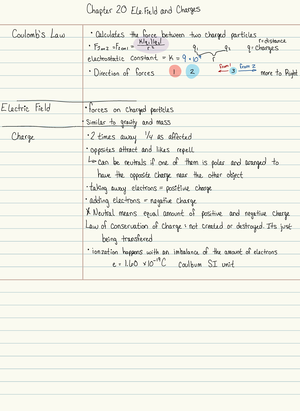 Chapter 20 Ele Field and Charges
Coulomb's Law
• Calculates the force between two charged particles
• F₁on2 = F2on1 = K|q₁||q₂| / r²
q₁ q₂ r=distance
q=charges
r
electrostatic constant = K = 9 × 10⁹
• Direction of forces 1 2 from 1 3 from 2 more to Right
Electric Field
• forces on Charged particles
• Similar to gravity and mass
Charge
• 2 times away ¼ as affected
• opposites attract and likes repell
↳ can be neutrals if one of them is polar and arranged to
have the opposite charge near the other object
• taking away electrons = positive charge
• adding electrons = negative charge
* Neutral means equal amount of positive and negative charge
Law of conservation of Charge: not created or destroyed. Its just
being transferred
• ionization happens with an imbalance of the amount of electrons
e = 1.60 × 10⁻¹⁹ C coulbum SI unit